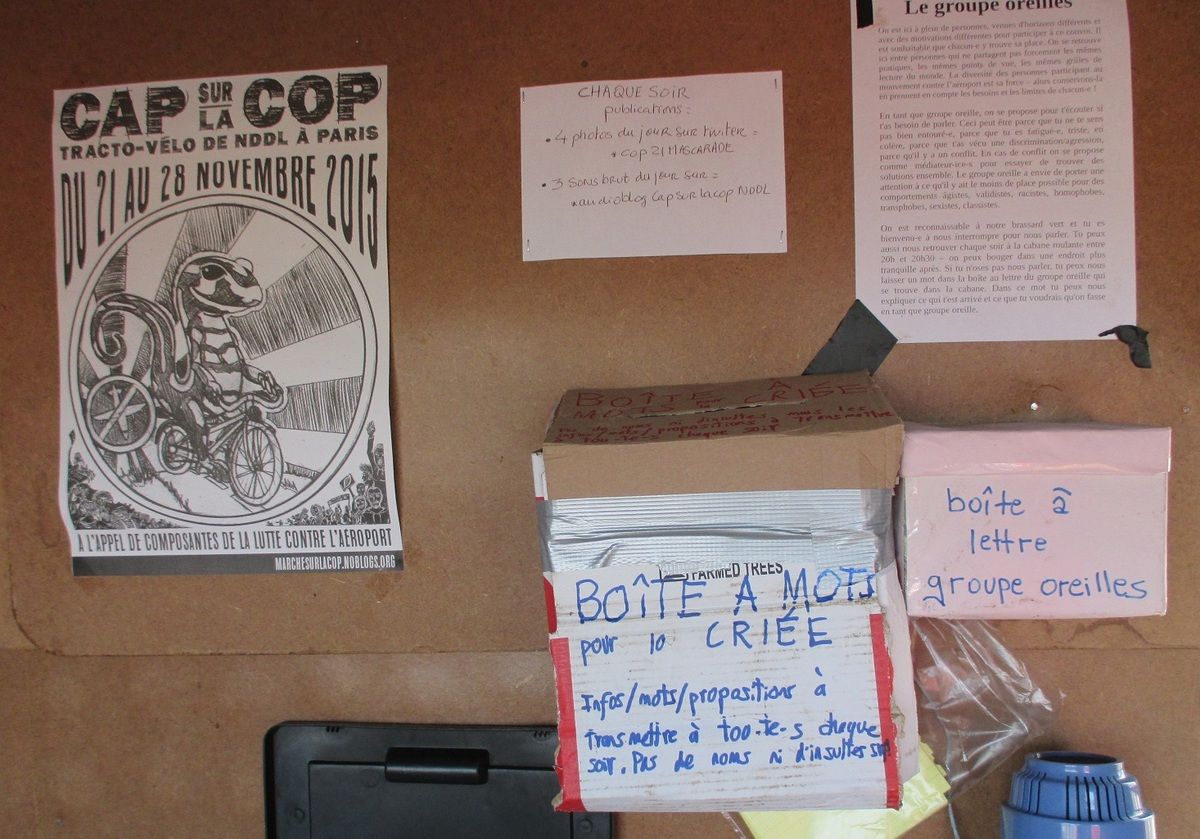 CAP SUR LA COP
TRACTO-VÉLO DE NDDL À PARIS
DU 21 AU 28 NOVEMBRE 2015
A L'APPEL DE COMPOSANTES DE LA LUTTE CONTRE L'AÉROPORT
MARCHESURLACOP.NOBLOGS.ORG
CHAQUE SOIR
publications :
• 4 photos du jour sur twiter =
* COP 21 MASCARADE
• 3 sons brut du jour sur =
* audioblog Cap sur la cop NDDL
Le groupe oreilles
On est ici à plein de personnes, venues d'horizons différents et
avec des motivations différentes pour participer à ce convoi. Il
est souhaitable que chacun-e y trouve sa place. On se retrouve
ici entre personnes qui ne partagent pas forcément les mêmes
pratiques, les mêmes points de vue, les mêmes grilles de
lecture du monde. La diversité des personnes participant au
mouvement contre l'aéroport est sa force – alors conservons-la
en prenant en compte les besoins et les limites de chacun-e !
En tant que groupe oreille, on se propose pour t'écouter si
t'as besoin de parler. Ceci peut être parce que tu ne te sens
pas bien entouré-e, parce que tu es fatigué-e, triste, en
colère, parce que t'as vécu une discrimination/agression,
parce qu'il y a un conflit. En cas de conflit on se propose
comme médiateur-ice-s pour essayer de trouver des
solutions ensemble. Le groupe oreille a envie de porter une
attention à ce qu'il y ait le moins de place possible pour des
comportements âgistes, validistes, racistes, homophobes,
transphobes, sexistes, classistes.
On est reconnaissable à notre brassard vert et tu es
bienvenu-e à nous interrompre pour nous parler. Tu peux
aussi nous retrouver chaque soir à la cabane roulante entre
20h et 20h30 – on peux bouger dans une endroit plus
tranquille après. Si tu n'oses pas nous parler, tu peux nous
laisser un mot dans la boîte au lettre du groupe oreille qui
se trouve dans la cabane. Dans ce mot tu peux nous
expliquer ce qui t'est arrivé et ce que tu voudrais qu'on fasse
en tant que groupe oreille.
BOÎTE À
MOTS pour la CRIÉE
pas de noms ni d'insultes mais les
infos/mots/propositions à transmettre
à tou-te-s chaque soir
FARMED TREES
BOÎTE A MOTS
pour la CRIÉE
Infos/mots/propositions à
transmettre à tou-te-s chaque
soir. Pas de noms ni d'insultes svp
boîte à
lettre
groupe oreilles